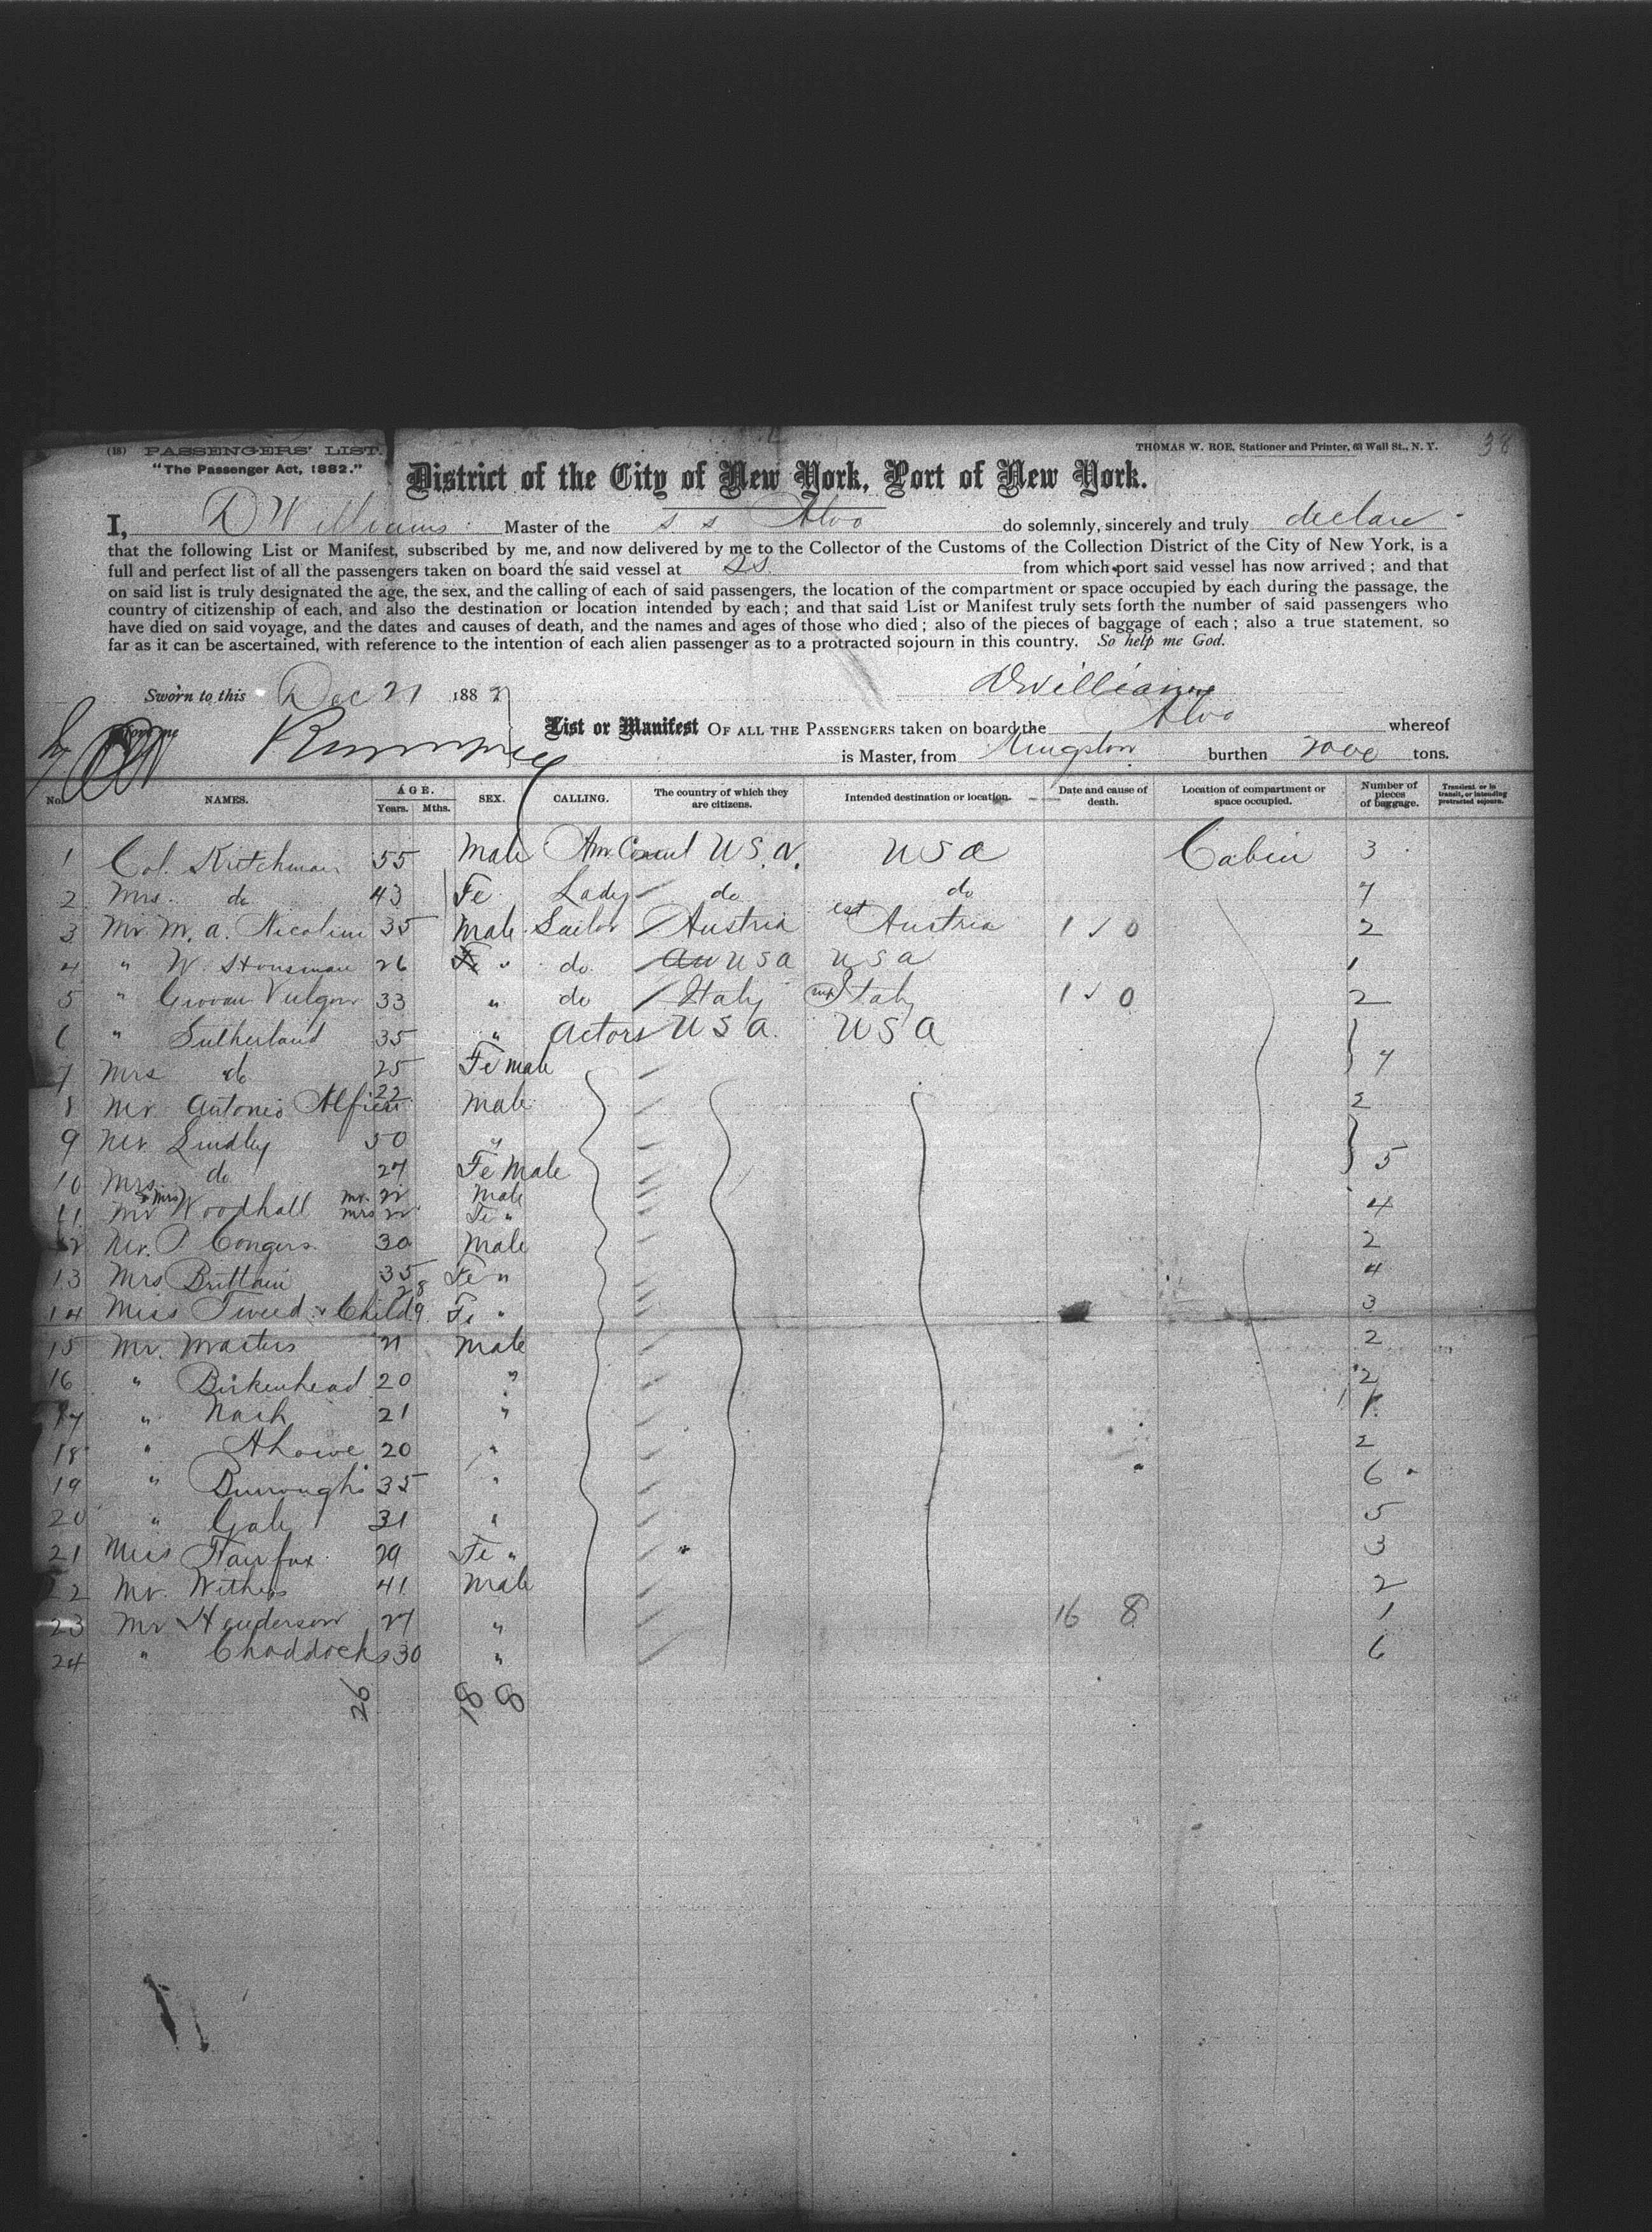 (18) PASSENGERS' LIST. THOMAS W. ROE, Stationer and Printer, 63 Wall St., N. Y. 38
"The Passenger Act, 1882."
District of the City of New York, Port of New York.
I, D Williams Master of the s s Alvo do solemnly, sincerely and truly declare
that the following List or Manifest, subscribed by me, and now delivered by me to the Collector of the Customs of the Collection District of the City of New York, is a
full and perfect list of all the passengers taken on board the said vessel at from which port said vessel has now arrived; and that
on said list is truly designated the age, the sex, and the calling of each of said passengers, the location of the compartment or space occupied by each during the passage, the
country of citizenship of each, and also the destination or location intended by each; and that said List or Manifest truly sets forth the number of said passengers who
have died on said voyage, and the dates and causes of death, and the names and ages of those who died; also of the pieces of baggage of each; also a true statement, so
far as it can be ascertained, with reference to the intention of each alien passenger as to a protracted sojourn in this country. So help me God.
Sworn to this Dec 21 188 DWilliams
List or Manifest OF ALL THE PASSENGERS taken on board the Alvo whereof
is Master, from Kingston burthen 2000 tons.
No. NAMES. AGE. Years. Mths. SEX. CALLING. The country of which they are citizens. Intended destination or location. Date and cause of death. Location of compartment or space occupied. Number of pieces of baggage. Transient or in transit, or intending protracted sojourn.
1 Col. 55 Male Am Consul U S A. U S A Cabin 3
2 Mrs. do 43 Fe Lady do do 7
3 Mr M. A. Nicolini 35 Male Sailor Austria Austria 1 0 2
4 " W. 26 " do U S A U S A 1
5 " 33 " do Italy Italy 1 0 2
6 " Sutherland 35 " Actors U S A. U S A
7 Mrs do 25 Fe male 7
8 Mr Antonio Alfieri 22 Male 2
9 Mr Lindley 50 "
10 Mrs. do 27 Fe Male 5
11 Mr & Mrs Woodhall Mr. 22 Mrs 22 Male Fe " 4
12 Mr. P Congers 30 Male 2
13 Mrs Brittain 35 Fe " 4
14 Miss Tweed & Child 28 9 Fe " 3
15 Mr. Masters 21 Male 2
16 " Birkenhead 20 " 2
17 " Nash 21 " 1
18 " 20 " 2
19 " Burroughs 35 " 6
20 " Gale 31 " 5
21 Miss Fairfax 29 Fe " 3
22 Mr. Withers 41 Male 2
23 Mr Henderson 27 " 16 8 1
24 " Chaddocks 30 " 6
26 18 8